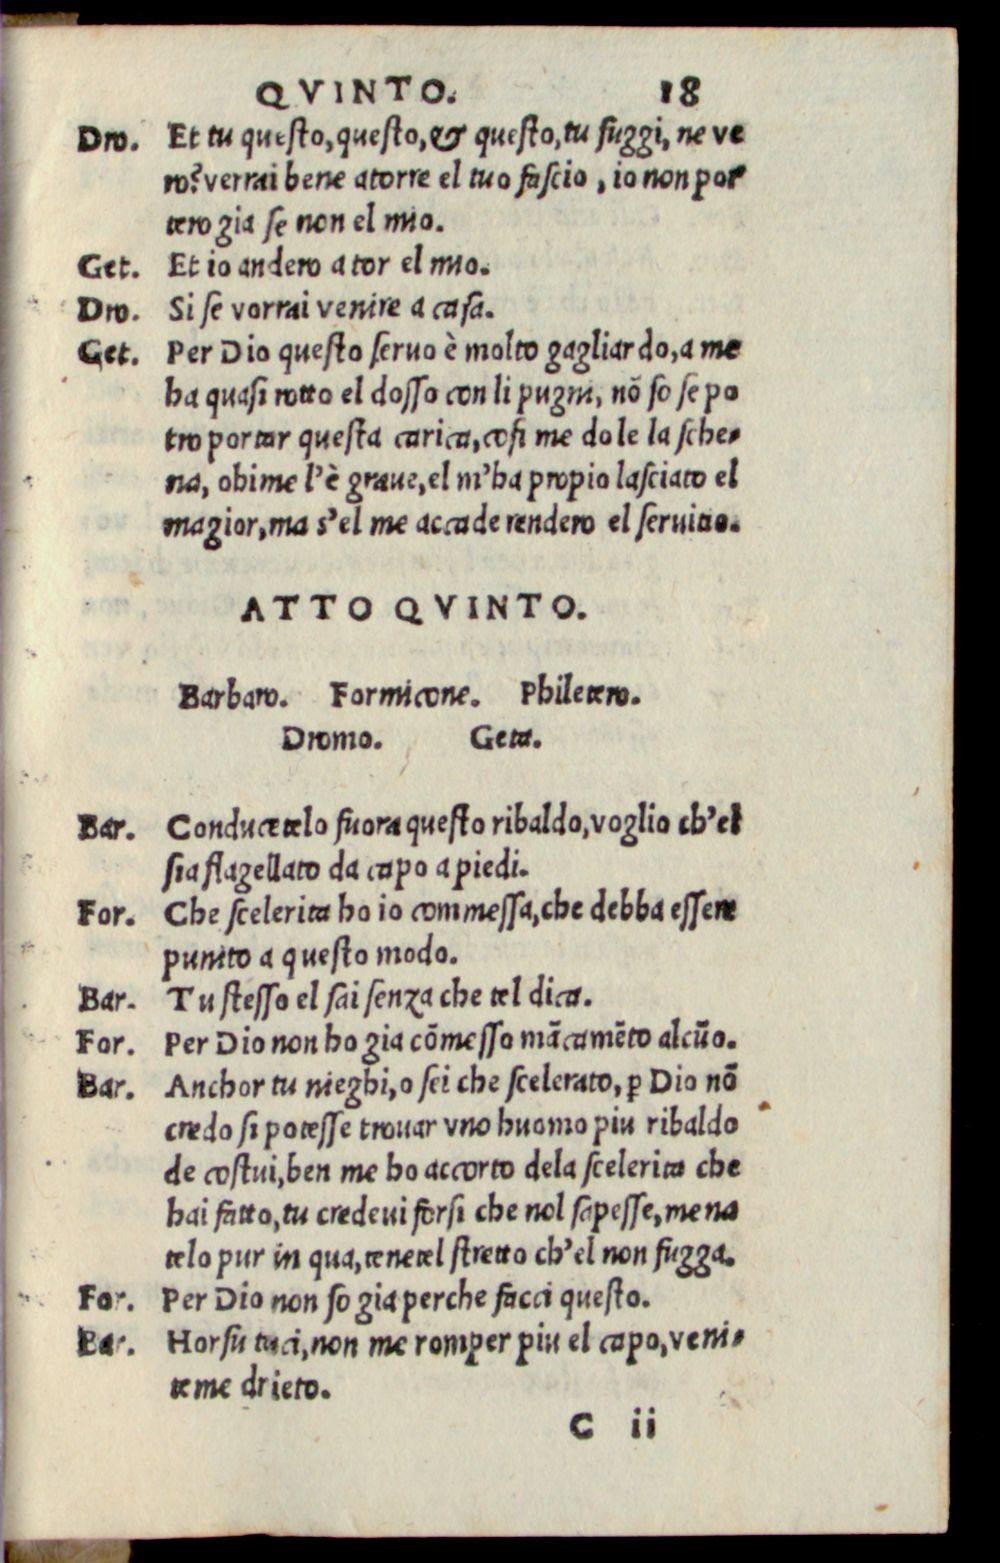 QVINTO. 18
Dro. Et tu questo, questo, & questo, tu fuggi, ne ve
ro? verrai bene a torre el tuo fascio, io non por
tero gia se non el mio.
Get. Et io andero a tor el mio.
Dro. Si se vorrai venire a casa.
Get. Per Dio questo seruo è molto gagliardo, a me
ha quasi rotto el dosso con li pugni, nõ so se po
tro portar questa carica, cosi me dole la sche-
na, ohime l'è graue, el m'ha propio lasciato el
magior, ma s'el me accade rendero el seruitio.
ATTO QVINTO.
Barbaro. Formicone. Philetero.
Dromo. Geta.
Bar. Conducetelo fuora questo ribaldo, voglio ch'el
sia flagellato da capo a piedi.
For. Che scelerita ho io commessa, che debba essere
punito a questo modo.
Bar. Tu stesso el sai senza che tel dica.
For. Per Dio non ho gia cõmesso mãcamẽto alcũo.
Bar. Anchor tu nieghi, o sei che scelerato, ꝑ Dio nõ
credo si potesse trouar vno huomo piu ribaldo
de costui, ben me ho accorto dela scelerita che
hai fatto, tu credeui forsi che nol sapesse, mena
telo pur in qua, tenetel stretto ch'el non fugga.
For. Per Dio non so gia perche facci questo.
Bar. Horsu taci, non me romper piu el capo, veni-
teme drieto.
C ii